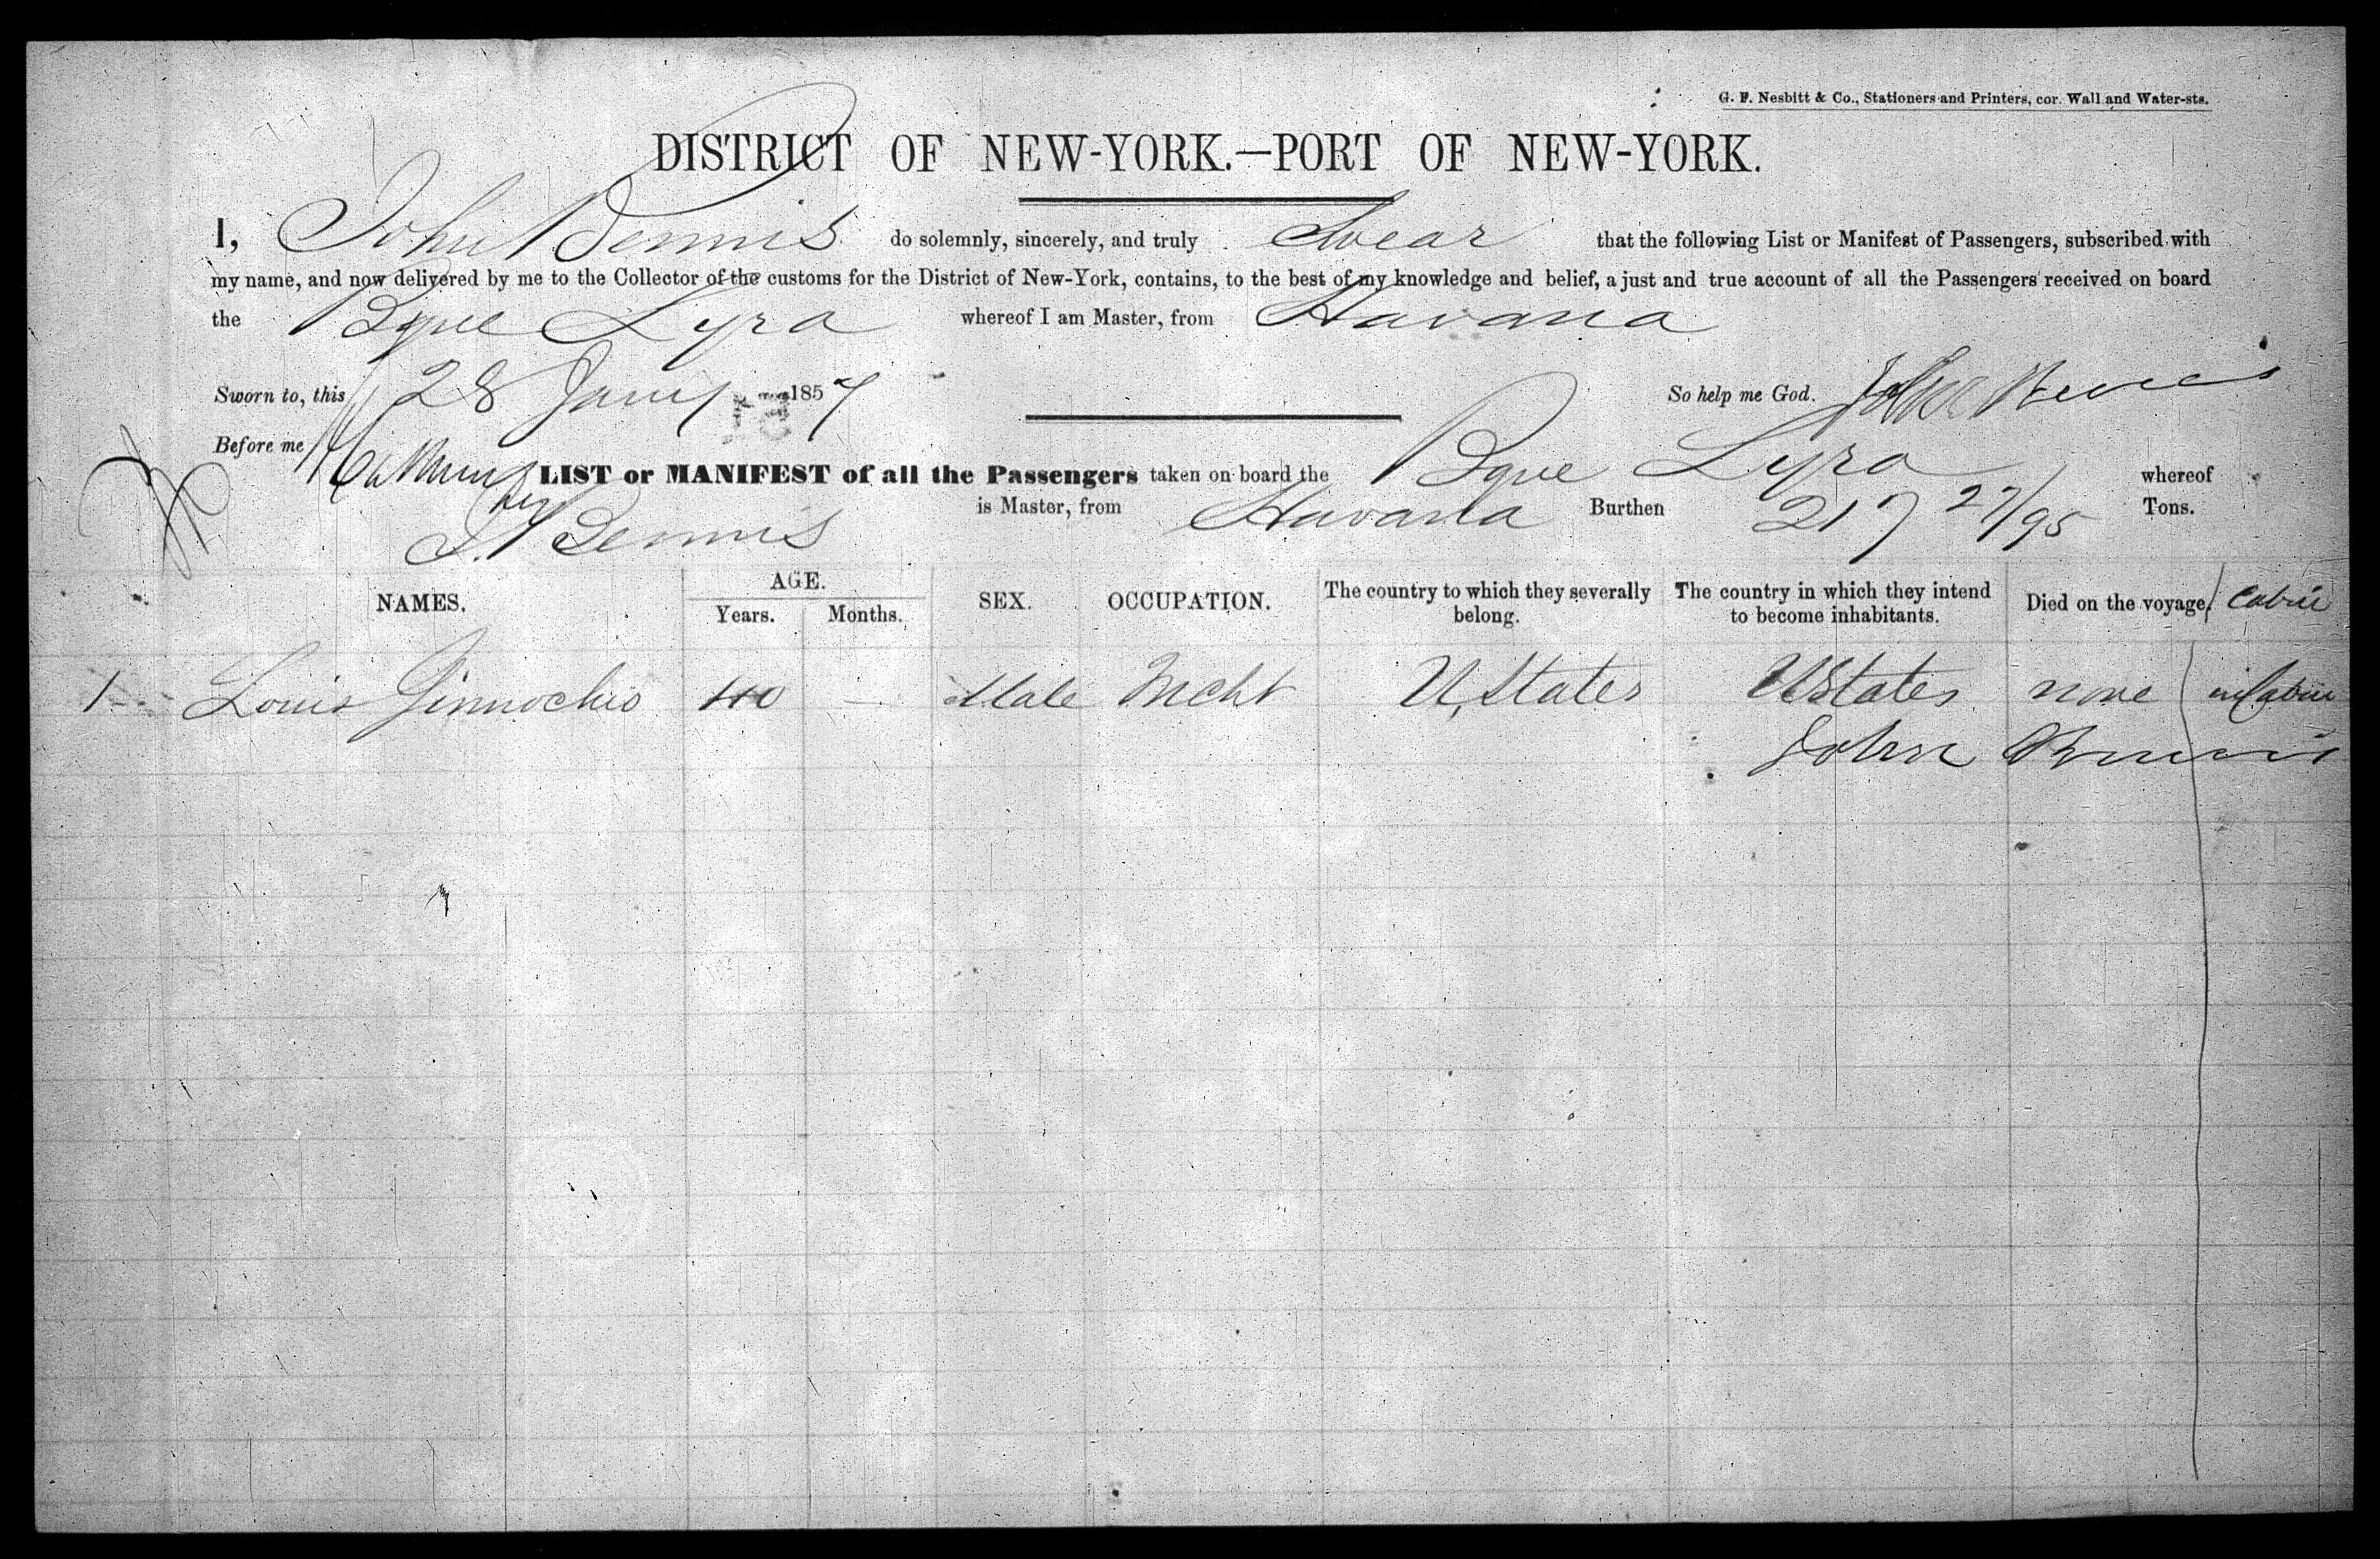 G. F. Nesbitt & Co., Stationers and Printers, cor. Wall and Water-sts.
DISTRICT OF NEW-YORK.—PORT OF NEW-YORK.
I, John Dennis do solemnly, sincerely, and truly Swear that the following List or Manifest of Passengers, subscribed with
my name, and now delivered by me to the Collector of the customs for the District of New-York, contains, to the best of my knowledge and belief, a just and true account of all the Passengers received on board
the Bque Lyra whereof I am Master, from Havana
Sworn to, this 28 Jany 1857 So help me God. John Dennis
Before me
LIST or MANIFEST of all the Passengers taken on board the Bque Lyra whereof
J. Dennis is Master, from Havana Burthen 217 27/95 Tons.
NAMES. AGE. Years. Months. SEX. OCCUPATION. The country to which they severally belong. The country in which they intend to become inhabitants. Died on the voyage. Cabin
1 Louis Ginnochio 40 — Male Mcht U. States U States none in Cabin
John Dennis